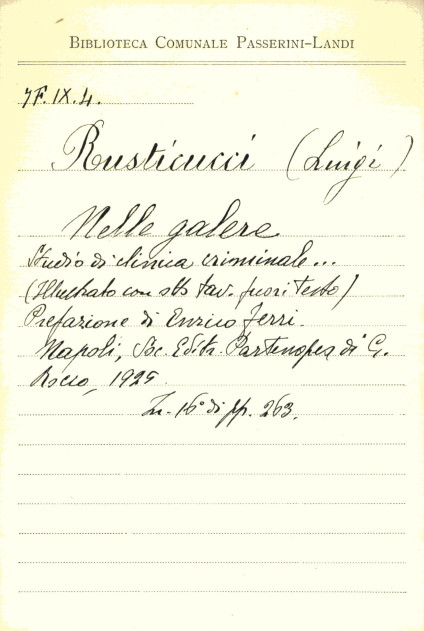 BIBLIOTECA COMUNALE PASSERINI-LANDI
7F.IX.4.
Rusticucci (Luigi)
Nelle galere
Studio di clinica criminale...
(Illustrato con tav. fuori testo)
Prefazione di Enrico Ferri.
Napoli, Soc. Editr. Partenopea di G.
Rocco, 1925.
In-16° di pp. 263.